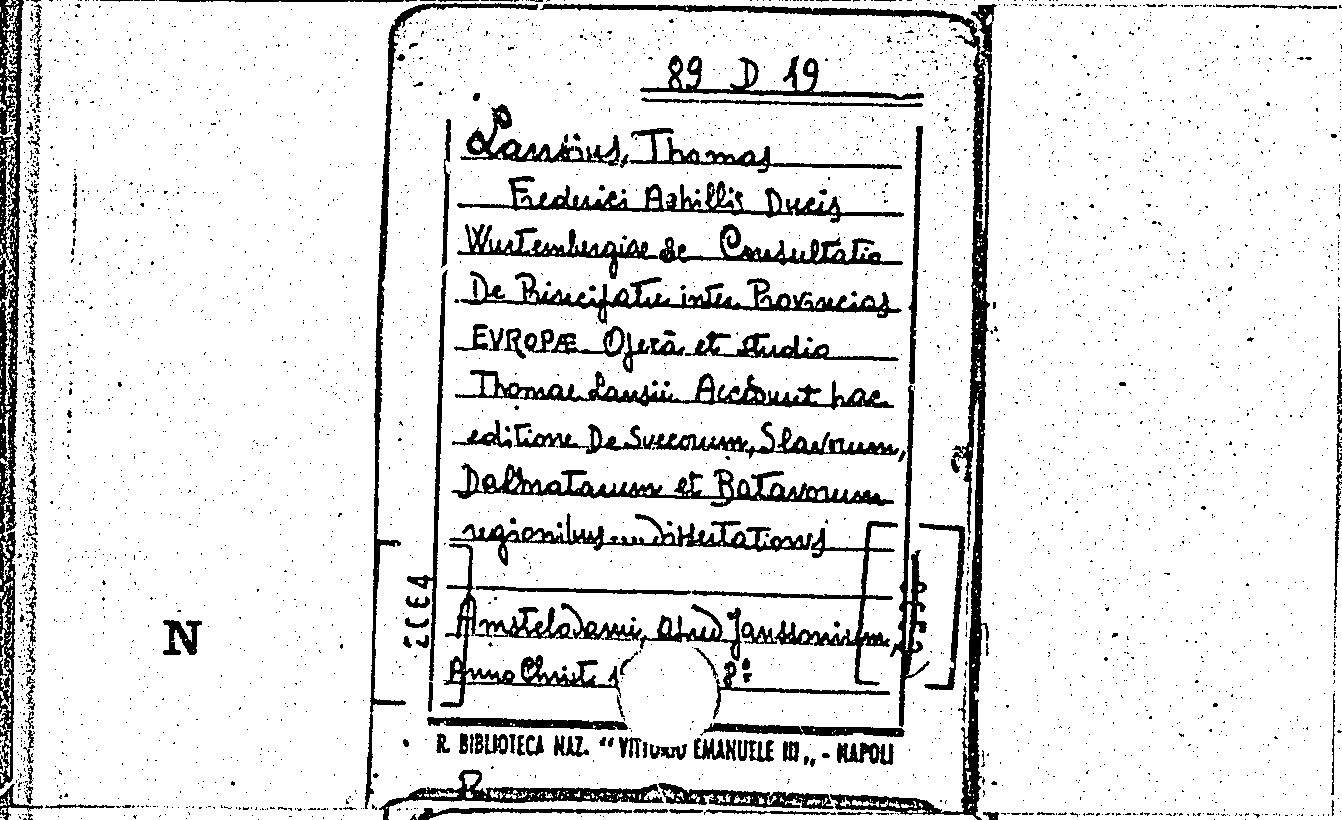 89 D 19
Lansius, Thomas
Frederici Achillis Ducis
Wurtembergiae &c Consultatio
De Principatu inter Provincias
EVROPÆ Operā et studio
Thomae Lansii Accedunt hac
editione De Svecorum, Slavorum,
Dalmatarum et Batavorum
regionibus... dissertationes
Amstelodami, apud Janssonium,
Anno Christi 8°
R. BIBLIOTECA NAZ. “VITTORIO EMANUELE III„ - NAPOLI
N